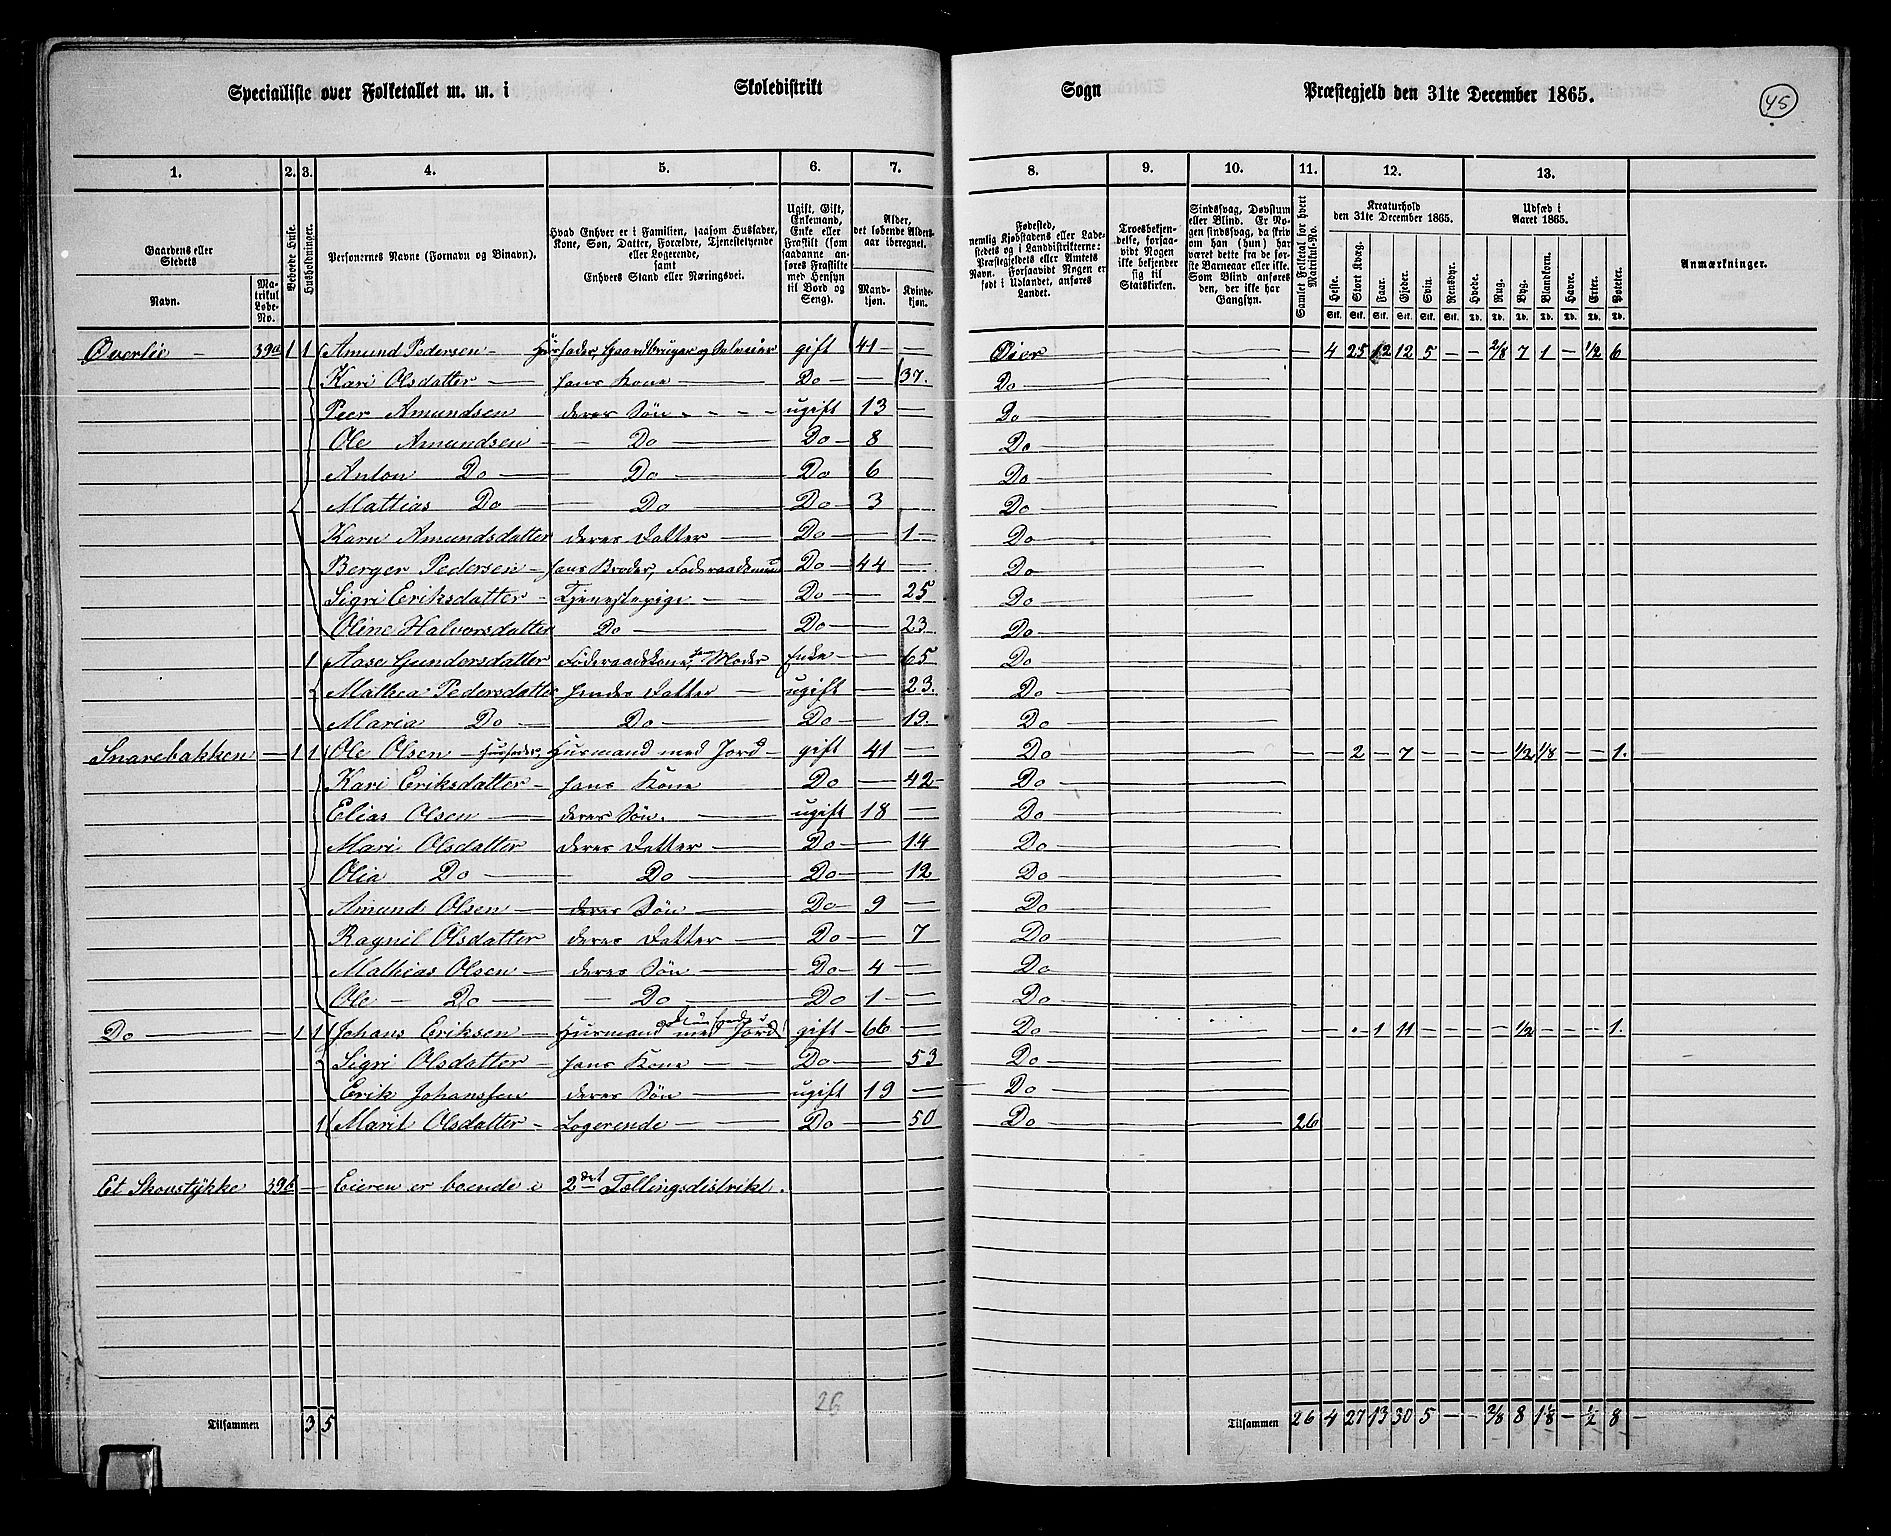 Specialliste over Folketallet m. m. i Skoledistrikt Sogn Præstegjeld den 31te December 1865. 45
1. 2. 3. 4. 5. 6. 7. 8. 9. 10. 11. 12. 13.
Gaardens eller Stedets Navn. Matrikul Løbe-No. Beboede Huse. Husholdninger. Personernes Navne (Fornavn og Binavn).
Hvad Enhver er i Familien, saasom Husfader, Kone, Søn, Datter, Forældre, Tjenestetyende eller Logerende, samt Enhvers Stand eller Næringsvei.
Ugift, Gift, Enkemand, Enke eller Fraskilt (som saadanne anføres Fraskilte med Hensyn til Bord og Seng).
Alder, det løbende Aldersaar iberegnet. Mandkjøn. Kvindekjøn.
Fødested, nemlig Kjøbstadens eller Ladestedets og i Landdistrikterne: Præstegjeldets eller Amtets Navn. Forsaavidt Nogen er født i Udlandet, anføres Landet.
Troesbekjendelse, forsaavidt Nogen ikke bekjender sig til Statskirken.
Sindssvag, Døvstum eller Blind. Er Nogen sindssvag, da skrives om han (hun) har været dette fra de første Barneaar eller ikke. Som Blind anføres den, der ikke har Gangsyn.
Samlet Folketal for hvert Matrikul-No.
Kreaturhold den 31te December 1865. Heste. Stort Kvæg. Faar. Gjeder. Svin. Rensdyr.
Udsæd i Aaret 1865. Hvede. Rug. Byg. Blandkorn. Havre. Erter. Poteter.
Anmærkninger.
Stk. Stk. Stk. Stk. Stk. Stk. Td. Td. Td. Td. Td. Td. Td.
Øverlie - 39a 1 1 Amund Pedersen - Husfader, Gaardbruger og Selveier gift 41 - Øier 4 25 12 12 5 - - 2/8 7 1 - 1/2 6
Kari Olsdatter - hans Kone - Do - 37. Do
Peer Amundsen deres Søn - ugift 13 - Do
Ole Amundsen - Do - Do - 8 Do
Anton Do - Do - Do 6 Do
Mattias Do - Do - Do - 3 Do
Karn Amundsdatter deres Datter - Do - 1 - Do
Berger Pedersen - hans Broder, Føderaadsmand Do - 44 - Do
Sigri Eriksdatter - Tjenestepige - Do - 25 Do
Oline Halvorsdatter Do - Do - 23 Do
1 Aase Gundersdatter Føderaadskone, hans Moder Enke - 65 Do
Mathea Pedersdatter hendes Datter - ugift - 23. Do
Maria Do - Do - Do - 19. Do
Snarebakken - 1 1 Ole Olsen - Husfader, Husmand med Jord - gift 41 - Do - 2 - 7 - - - - 1/2 1/8 - - 1.
Kari Eriksdatter - hans Kone Do - 42 - Do
Elias Olsen - deres Søn. - ugift 18 - Do
Mari Olsdatter deres Datter - Do - 14 Do
Olia Do - Do - Do - 12 Do
Amund Olsen - deres Søn - Do - 9 - Do
Ragnil Olsdatter deres Datter - Do - 7 Do
Mathias Olsen - deres Søn - Do - 4 - Do
Ole - Do - - Do - Do 1 - Do
Do - 1 1 Johans Eriksen - Husmand med Jord Husfader gift - 66 - Do - 1 11 - - - - 1/2 - - - 1.
Sigri Olsdatter - hans Kone - Do - 53 Do
Erik Johansen deres Søn - ugift 19 - Do
1 Marit Olsdatter - Logerende - Do - 50 Do 26
Et Skovstykke 39b - Eieren er boende i 2det Tællingsdistrikt.
26
Tilsammen 3 5 Tilsammen 26 4 27 13 30 5 - - 2/8 8 1 1/8 - 1/2 8 -